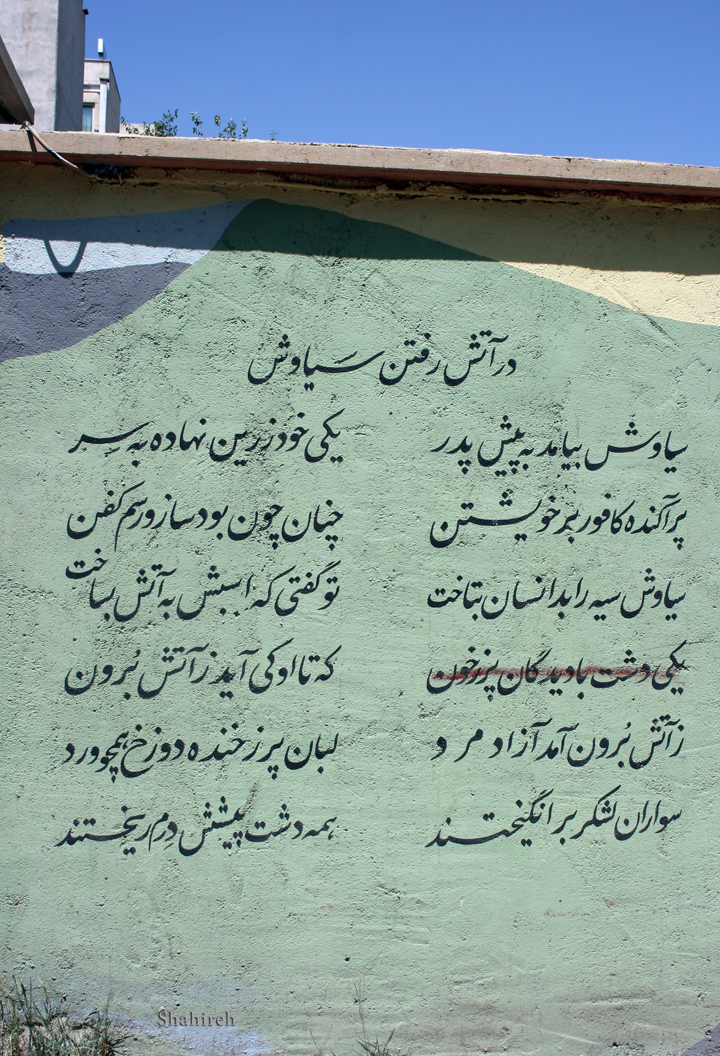 در آتش رفتن سیاوش
سیاوش بیامد به پیش پدر یکی خود زرین نهاده به سر
پرآکنده کافور بر خویشتن چنان چون بود ساز و رسم کفن
سیاوش سیه را بدانسان بتاخت تو گفتی که اسبش به آتش بساخت
یکی دشت با دیدگان پرزخون که تا او کی آید ز آتش بُرون
ز آتش بُرون آمد آزاد مرد لبان پر ز خنده دو رخ همچو ورد
سواران لشکر برانگیختند همه دشت پیشش دِرم ریختند
Shahireh